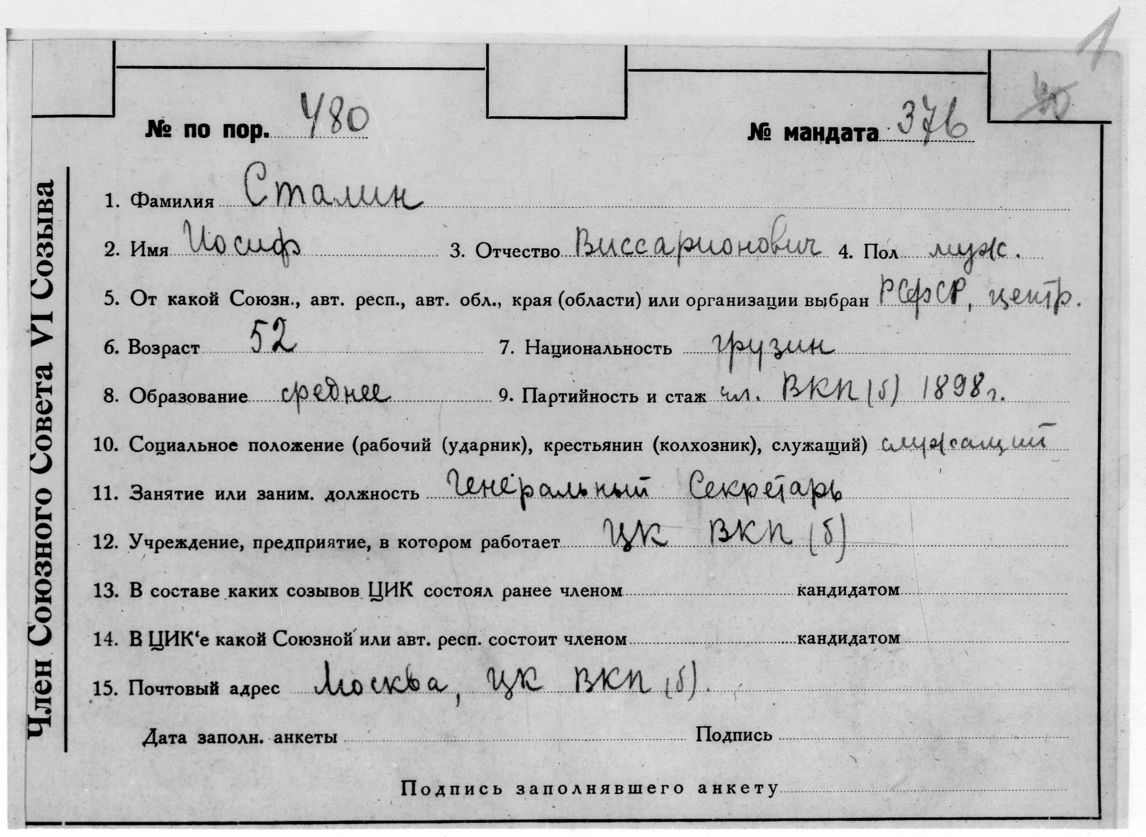 1
40
№ по пор. 480
№ мандата 376
Член Союзного Совета VI Созыва
1. Фамилия Сталин
2. Имя Иосиф 3. Отчество Виссарионович 4. Пол муж.
5. От какой Союзн., авт. респ., авт. обл., края (области) или организации выбран РСФСР, центр.
6. Возраст 52 7. Национальность грузин
8. Образование среднее 9. Партийность и стаж чл. ВКП(б) 1898 г.
10. Социальное положение (рабочий (ударник), крестьянин (колхозник), служащий) служащий
11. Занятие или заним. должность Генеральный Секретарь
12. Учреждение, предприятие, в котором работает ЦК ВКП(б)
13. В составе каких созывов ЦИК состоял ранее членом кандидатом
14. В ЦИК‘е какой Союзной или авт. респ. состоит членом кандидатом
15. Почтовый адрес Москва, ЦК ВКП(б).
Дата заполн. анкеты Подпись
Подпись заполнявшего анкету